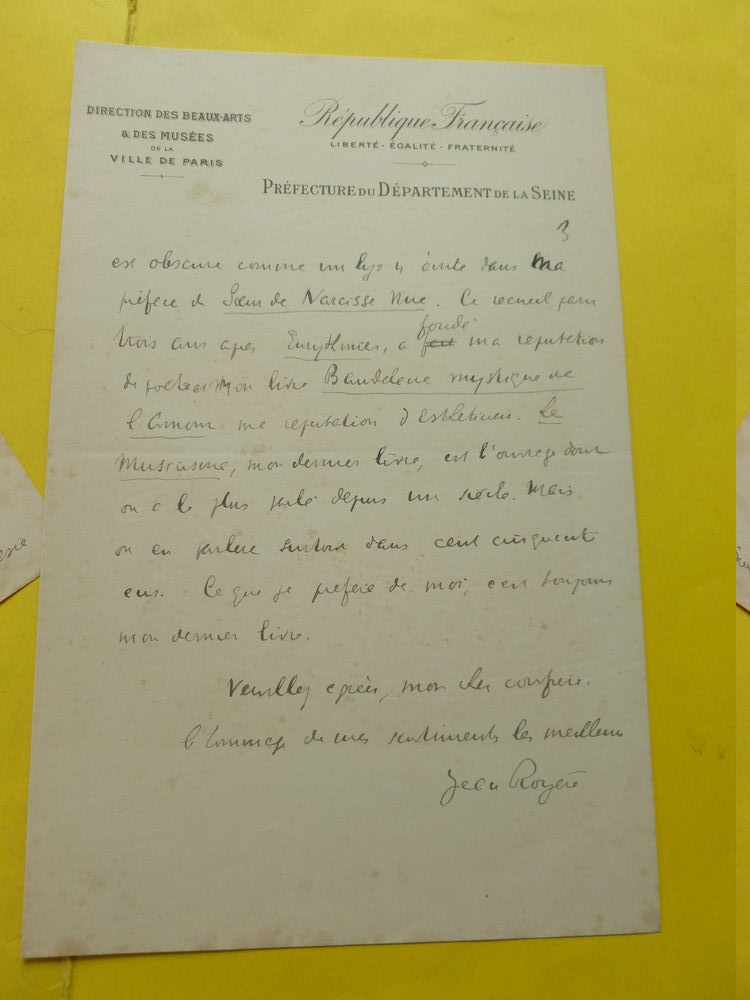 DIRECTION DES BEAUX-ARTS
& DES MUSÉES
DE LA
VILLE DE PARIS
République Française
LIBERTÉ · ÉGALITÉ · FRATERNITÉ
PRÉFECTURE DU DÉPARTEMENT DE LA SEINE
3
est obscure comme un lys" écrite dans ma
préface de Sœur de Narcisse Nue. Ce recueil, paru
trois ans après Eurythmies, a fondé ma réputation
de poète mon livre Baudelaire mystique de
l'Amour ma réputation d'Esthéticien. Le
Musicisme, mon dernier livre, est l'ouvrage dont
on a le plus parlé depuis un siècle. Mais
on en parlera surtout dans cent cinquante
ans. Ce que je préfère de moi, c'est toujours
mon dernier livre.
Veuillez agréer, mon cher confrère,
l'hommage de mes sentiments les meilleurs
Jean Royère